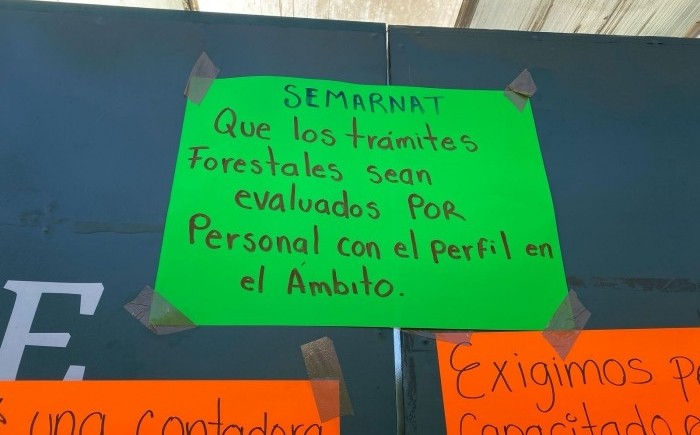 SEMARNAT
Que los trámites
Forestales sean
evaluados POR
Personal con el perfil en
el Ámbito.
E
una contadora
Exigimos